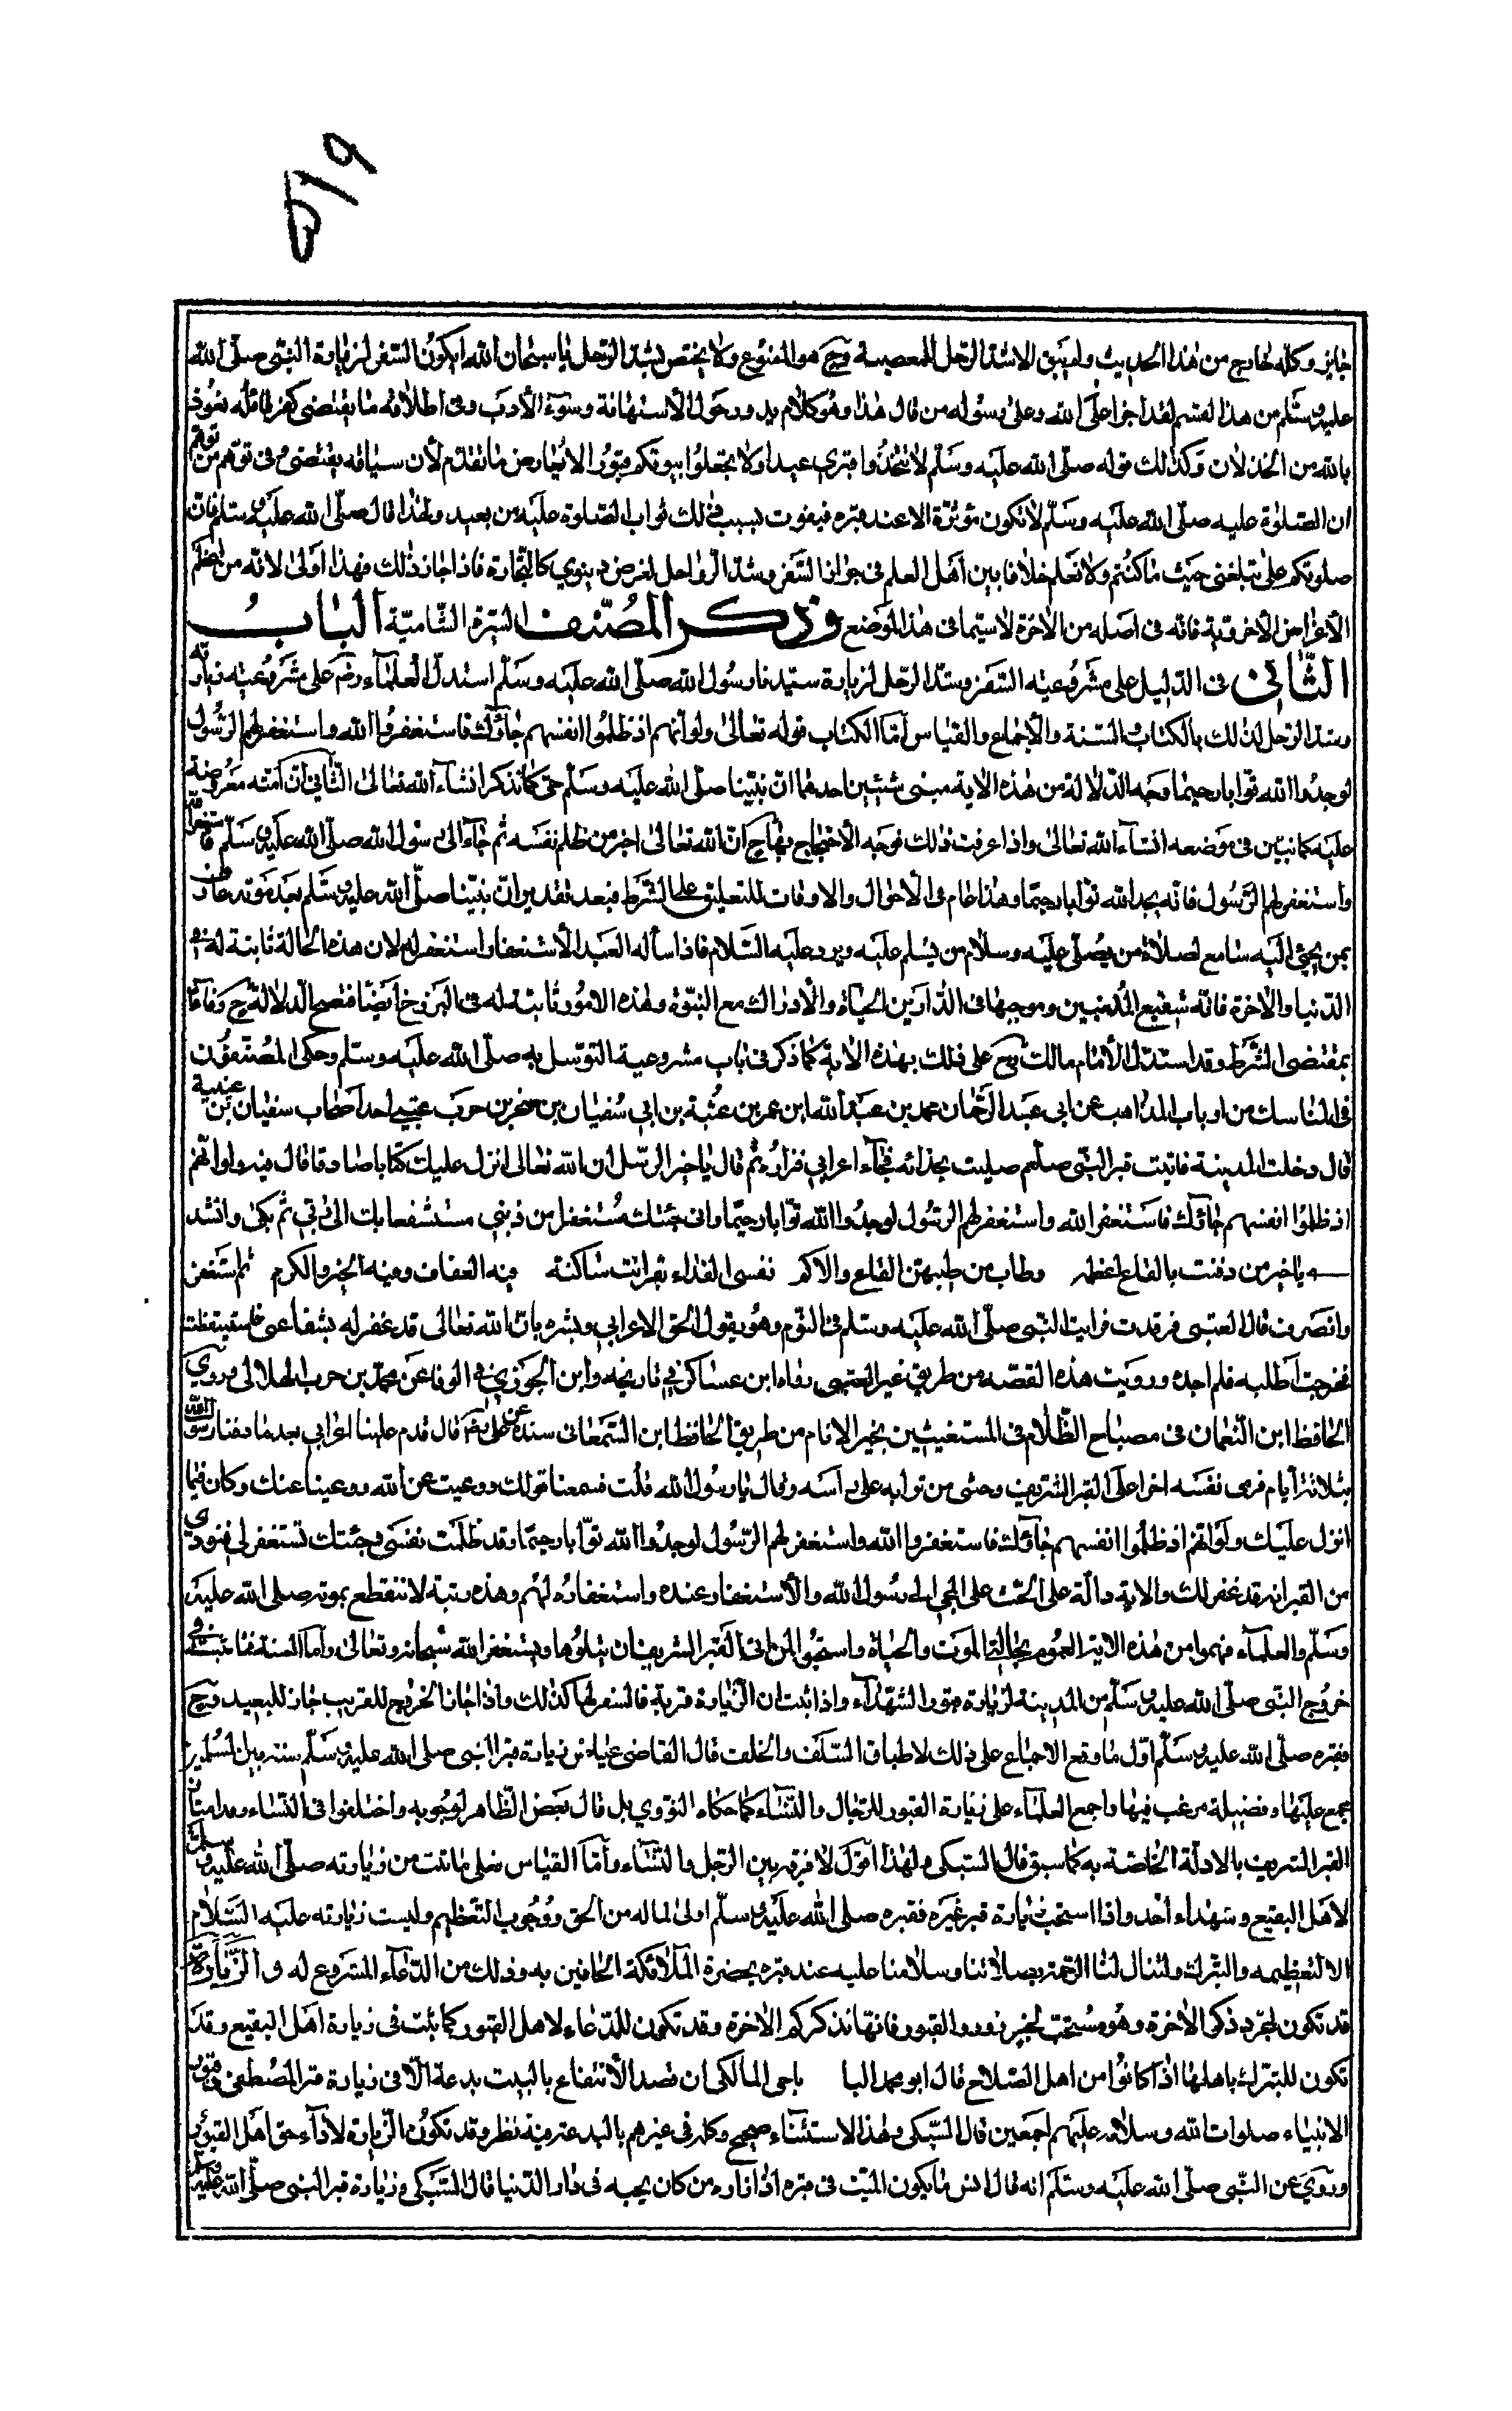 ٥١٩
جايز وكله خارج من هذا الحديث ولم يبق الا شد الرحل للمعصية وح هو الممنوع ولا يختص بشد الرحل يا سبحان الله ايكون السفر لزيارة النبى صلى الله
عليه وسلم من هذا القسم لقد اجرا على الله وعلى رسوله من قال هذا وهو كلام يدور حول الاستهانة وسوء الأدب وفى اطلاقه ما يقتضى كفر قائله نعوذ
بالله من الخذلان وكذلك قوله صلى الله عليه وسلم لا تتخذوا قبري عيدا ولا تجعلوا بيوتكم قبورا الا يجار من ما تقدم لأن سياقه يقتضى فى توهم من توهم
ان الصلوة عليه صلى الله عليه وسلم لا تكون مؤثرة الا عند قبره فيفوت بسبب ذلك ثواب الصلوة عليه من بعيد ولهذا قال صلى الله عليه وسلم فان
صلوتكم على تبلغنى حيث ما كنتم ولا نعلم خلافا بين أهل العلم فى جواز السفر وشد الرواحل لغرض دينوي كالتجارة فاذا جاز ذلك فهذا أولى لانه من اعظم
الأغراض الأخروية فانه فى اصله من الاخرة لا سيما فى هذا الموضع وذكر المصنف السيرة الشامية الباب
الثانى فى الدليل على مشروعية السفر وشد الرحل لزيارة سيدنا رسول الله صلى الله عليه وسلم استدل العلماء رضم على مشروعية زيارته
وشد الرحل لذلك بالكتاب والسنة والأجماع والقياس أما الكتاب قوله تعالى ولو أنهم اذ ظلموا انفسهم جاؤك فاستغفروا الله واستغفر لهم الرسول
لوجدوا الله توابا رحيما وجه الدلالة من هذه الاية مبنى شيئين احدهما ان نبينا صلى الله عليه وسلم حى كما نذكر انشاء الله تعالى الثانى أن أمته معروضة
عليه كما نبين فى موضعه انشاء الله تعالى واذا عرفت ذلك فوجه الاحتجاج بها ح ان الله تعالى اخبر من ظلم نفسه ثم جاء الى رسول الله صلى الله عليه وسلم فاستغفر الله
واستغفر لهم الرسول فانه يجد الله توابا رحيما وهذا عام فى الأحوال والاوقات للتعليق على الشرط فبعد تقدير ان نبينا صلى الله عليه وسلم بعد موته عارف
بمن يجئ اليه سامع لصلاة من يصلى عليه وسلام من يسلم عليه ويرد عليه السلام فاذا سأله العبد الأستغفار استغفر له لان هذه الحالة ثابتة له فى
الدنيا والاخرة فانه شفيع المذنبين وموجبها فى الدارين الحياة والأدراك مع النبوة وهذه الامور ثابتة له فى البرزخ أيضا فتصح الدلالة ح وفاء
بمقتضى الشرط وقد استدل الأمام مالك رح على ذلك بهذه الاية كما ذكر فى باب مشروعية التوسل به صلى الله عليه وسلم وحكى المصنفون
فى المناسك من ارباب المذاهب عن ابى عبد الرحمان محمد بن عبد الله ابن عمر بن عتبة بن ابى سفيان بن صخر بن حرب عتبى احد أصحاب سفيان بن عينية
قال دخلت المدينة فاتيت قبر النبى صلعم صليت بحذائه فجاء اعرابي فزاره ثم قال يا خير الرسل ان الله تعالى انزل عليك كتابا صادقا قال فيه ولو انهم
اذ ظلموا انفسهم جاؤك فاستغفر الله واستغفر لهم الرسول لوجدوا الله توابا رحيما وانى جئتك مستغفرا من ذنبى مستشفعا بك الى ربى ثم بكى وانشد
يا خير من دفنت بالقاع اعظمه وطاب من طيبهن القاع والاكم نفسى الفداء بقبر انت ساكنه فيه العفاف وفيه الخير والكرم ثم استغفر
وانصرف قال العتبى فرقدت فرايت النبى صلى الله عليه وسلم فى النوم وهو يقول الحق الاعرابي وبشره بان الله تعالى قد غفر له بشفاعتى فاستيقظت
فخرجت أطلبه فلم اجده ورويت هذه القصه من طريق غير العتبى رواه ابن عساكر فى تاريخه وابن الجوزى فى الوفا عن محمد بن حرب الهلالى وروى
الحافظ ابن النعمان فى مصباح الظلام فى المستغيثين بخير الانام من طريق الحافظ ابن السمعانى سنده عن على رضم قال قدم علينا اعرابى بعد ما دفنا رسول الله
بثلاثة أيام فرمى نفسه اخرا على القبر الشريف وحثى من ترابه على رأسه وقال يا رسول الله قلت فسمعنا قولك ووعيت عن الله ووعينا عنك وكان فيما
انزل عليك ولو انهم اذ ظلموا انفسهم جاؤك فاستغفروا الله واستغفر لهم الرسول لوجدوا الله توابا رحيما وقد ظلمت نفسى وجئتك تستغفر لى فنودى
من القبر انه قد غفر لك والاية دالة على الحث على المجى الى رسول الله والأستغفار عنده واستغفاره لهم وهذه رتبة لا تنقطع بموته صلى الله عليه
وسلم والعلماء فهموا من هذه الاية العموم بحالة الموت والحياة واستحبوا لمن اتى القبر الشريف ان يتلوها ويستغفر الله سبحانه وتعالى وأما السنة فما ثبت فى
خروج النبى صلى الله عليه وسلم من المدينة لزيارة قبور الشهداء واذا ثبت ان الزيارة قربة فالسفر لها كذلك واذا جاز الخروج للقريب جاز للبعيد وح
فقبره صلى الله عليه وسلم اول ما وقع الاجماع على ذلك لاطباق السلف والخلف قال القاضى عياض زيارة قبر النبى صلى الله عليه وسلم سنة بين المسلمين
مجمع عليها وفضيلة مرغب فيها واجمع العلماء على زيارة القبور للرجال والنساء كما حكاه النووي بل قال بعض الظاهر لوجوبه واختلفوا فى النساء وقد امتاز
القبر الشريف بالادلة الخاصة به كما سبق قال السبكى ولهذا أقول لا فرق بين الرجل والنساء وأما القياس فعلى ما ثبت من زيارته صلى الله عليه وسلم
لاهل البقيع وشهداء أحد واذا استحب زيارة قبر غيره فقبره صلى الله عليه وسلم اولى لما له من الحق ووجوب التعظيم وليست زيارته عليه السلام
الا لتعظيمه والتبرك ولتنال لنا الرحمة بصلاتنا وسلامنا عليه عند قبره بحضرة الملائكة الحافين به وذلك من الدعاء المشروع له والزيارة
قد تكون لمجرد ذكر الاخرة وهو مستحب لخبر زوروا القبور فانها تذكركم الاخرة وقد تكون للدعاء لاهل القبور كما ثبت فى زيارة أهل البقيع وقد
تكون للتبرك باهلها اذا كانوا من اهل الصلاح قال ابو محمد البا باجى المالكى ان قصد الأنتفاع بالميت بدعة الا فى زيارة قبر المصطفى وقبور
الانبياء صلوات الله وسلامه عليهم اجمعين قال السبكى وهذا الاستثناء صحيح وكله فى غيرهم بالبدعة فيه نظر وقد تكون الزيارة لاداء حق أهل القبور
وروى عن النبى صلى الله عليه وسلم انه قال انس ما يكون الميت فى قبره اذا زاره من كان يحبه فى دار الدنيا قال السبكى وزيارة قبر النبى صلى الله عليه وسلم